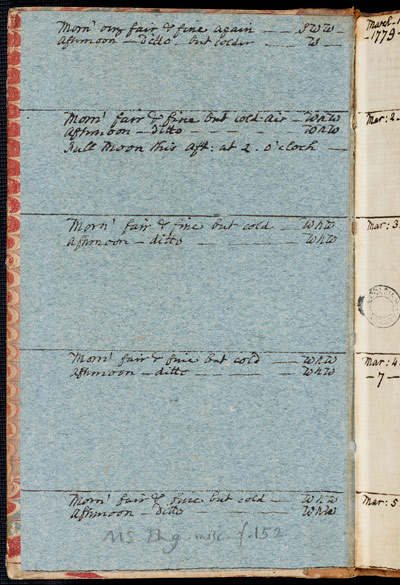 Morn' very fair & fine again — — SWW —
Afthmoon — ditto but colder — — W —
March 1
-1779-
Morn' fair & fine but cold air — WhW
Afthmoon — ditto — — — — WhW
Full Moon this Aft: at 2. o'clock —
Mar: 2
Morn' fair & fine but cold — WhW
Afthmoon — ditto — — — — WhW
Mar: 3
Morn' fair & fine but cold — WhW
Afthmoon — ditto — — — — WhW
Mar: 4
— 7 —
Morn' fair & fine but cold — WhW
Afthmoon — ditto — — — — WhW
Mar: 5
MS Eng. misc. f. 152